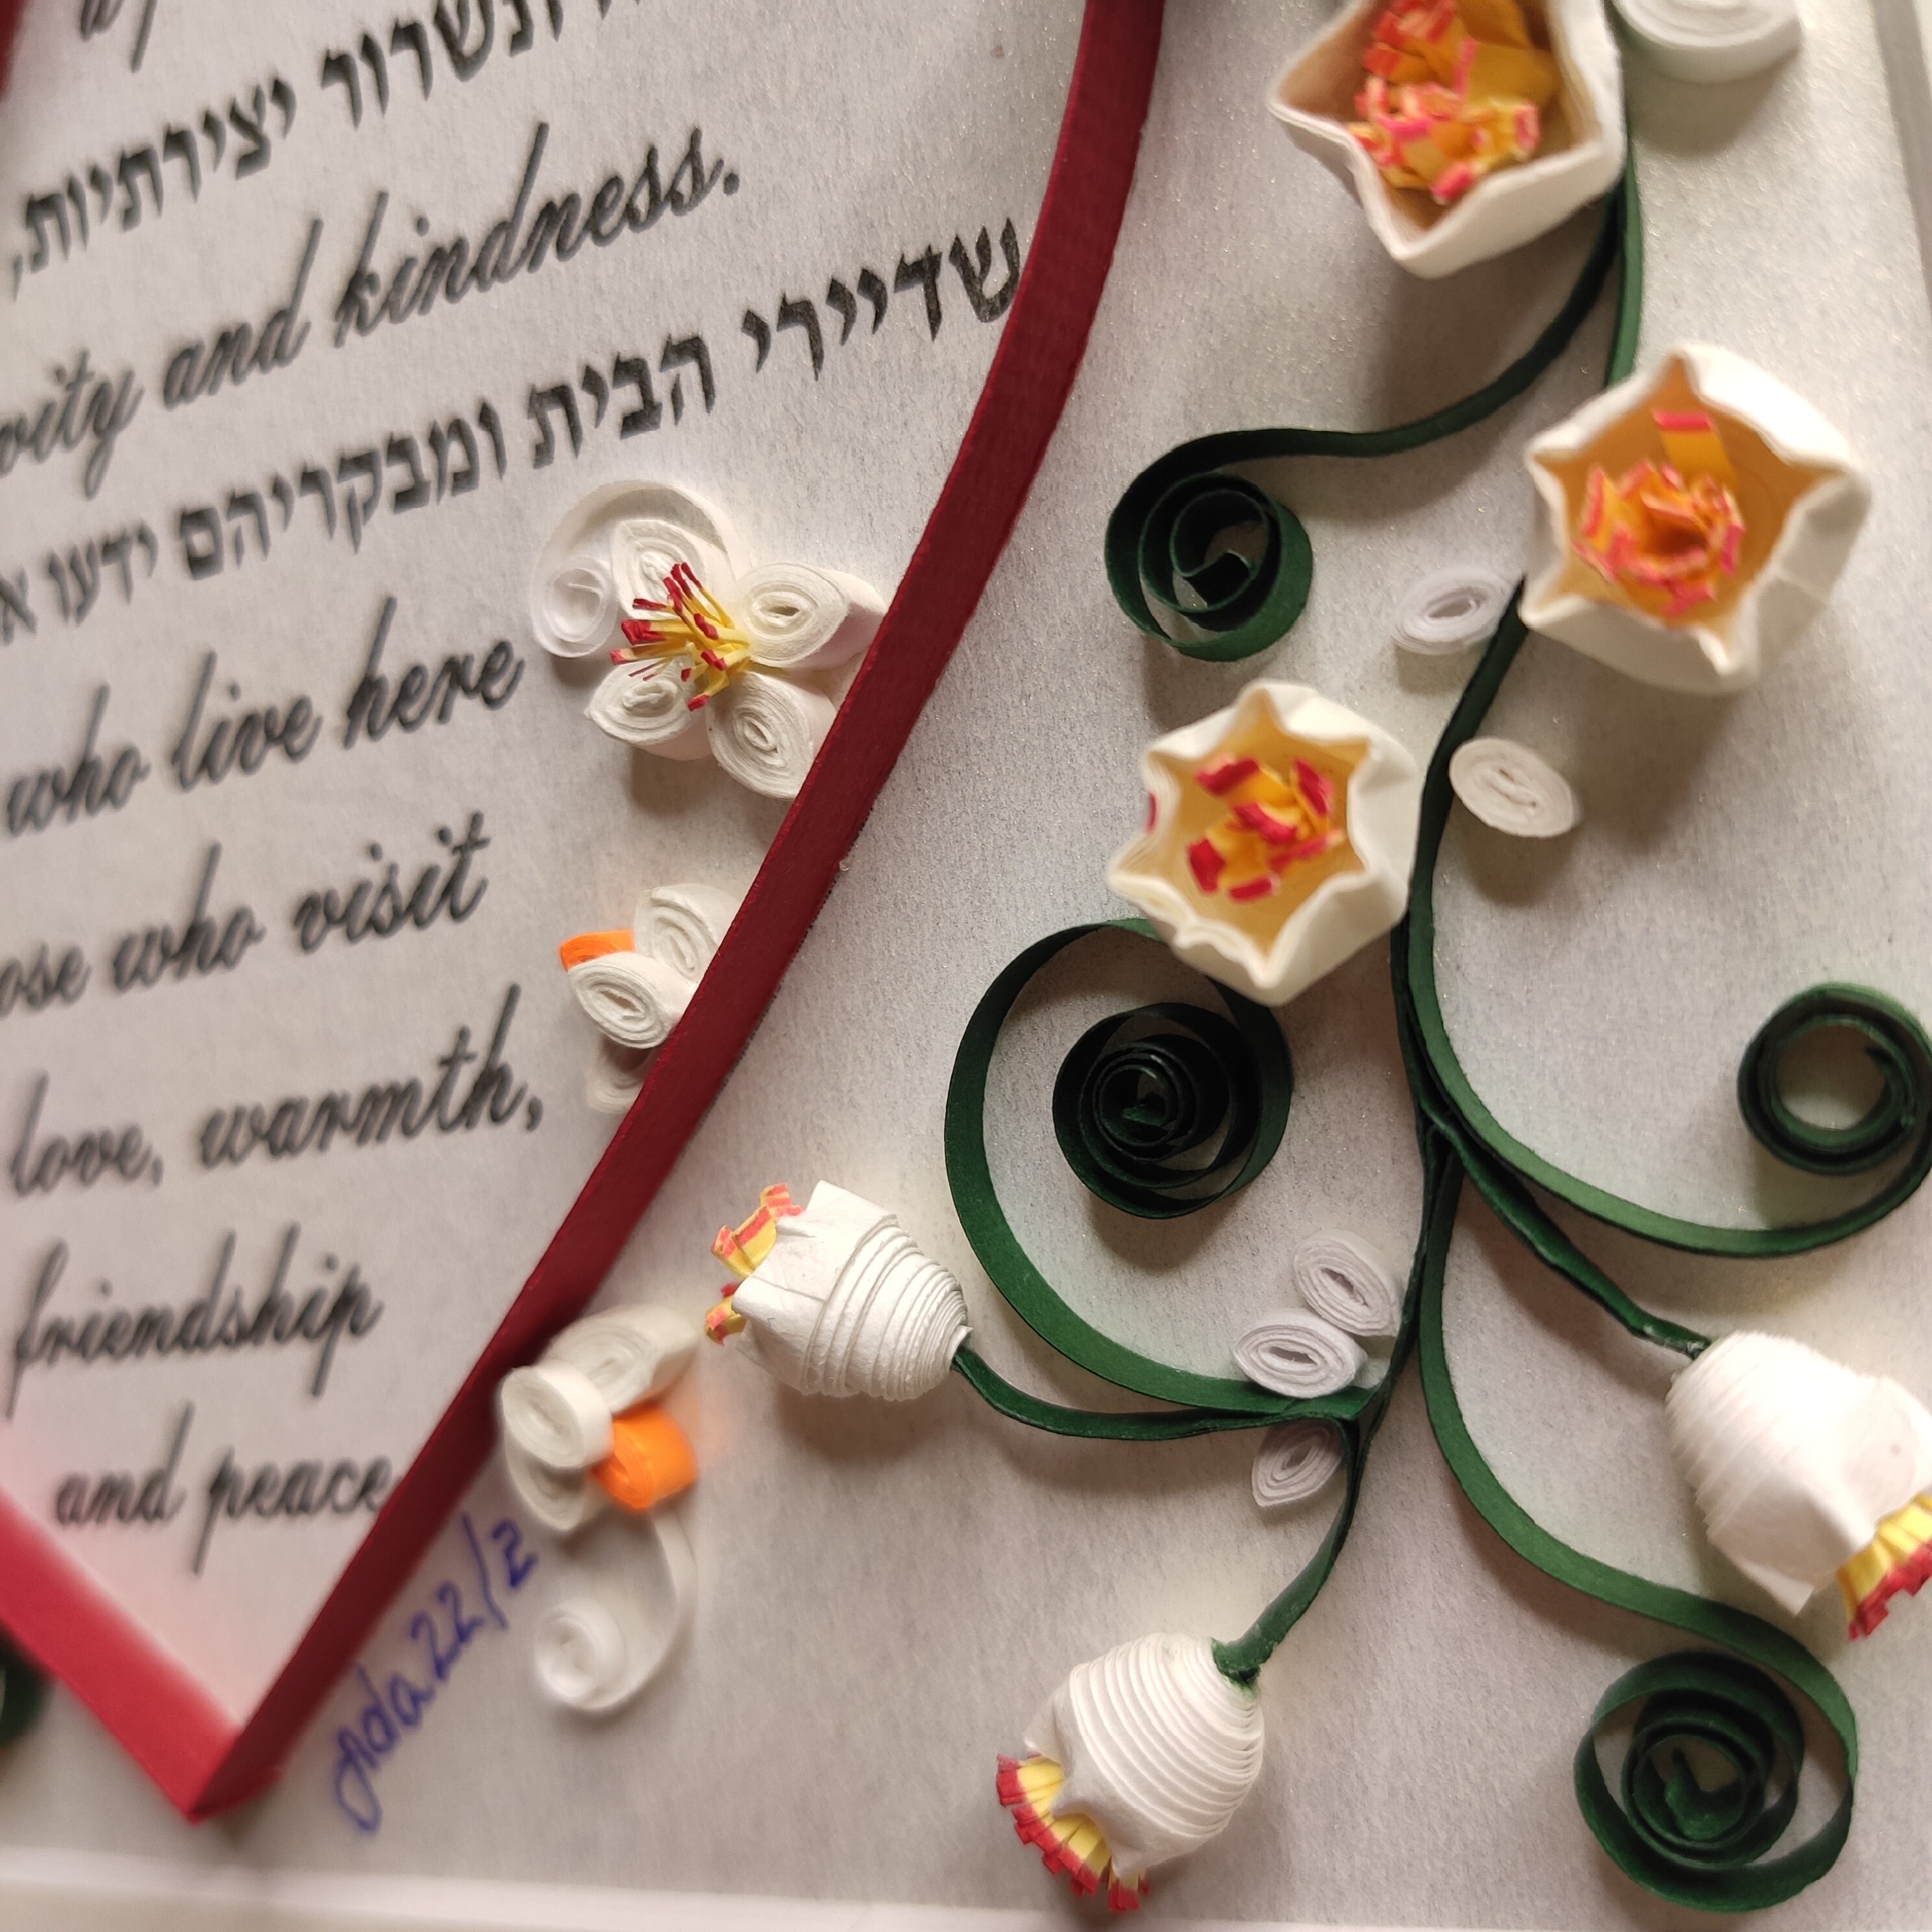 ותשרור יצירתיות,
and kindness.
שדיירי הבית ומבקריהם ידעו
who live here
who visit
love, warmth,
friendship
and peace
Ada 22/2